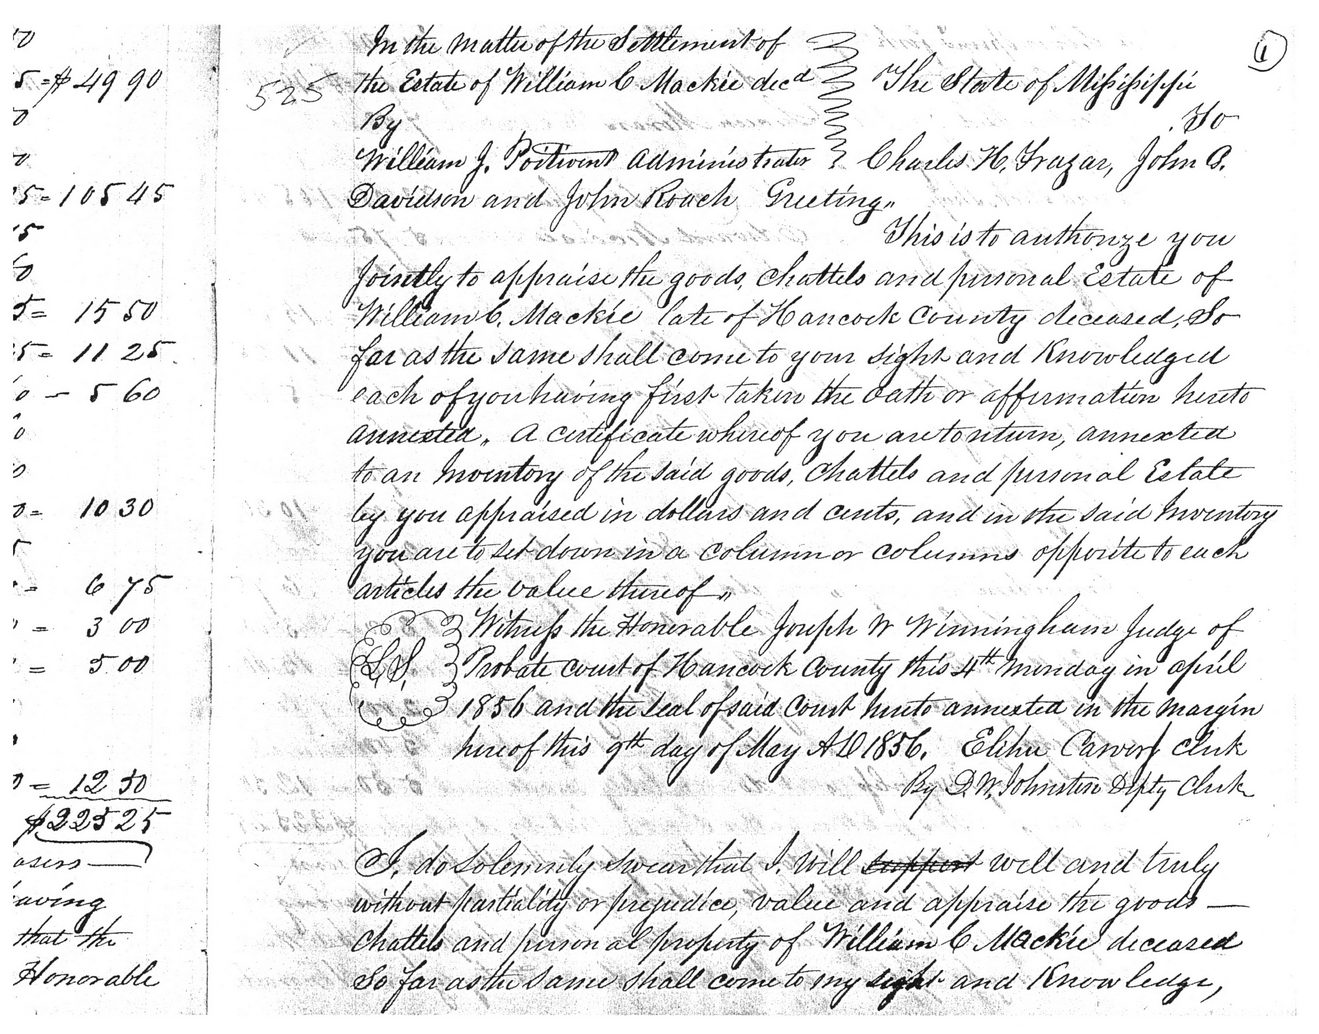 0
5 = $ 49 90
0
0
5 = 105 45
5
0
5 = 15 50
5 = 11 25
0 - 5 60
0
0
0 = 10 30
5
= 6 75
= 3 00
= 5 00
0 = 12 50
$225 25
asers
aving
that the
Honorable
1
525
In the matter of the Settlement of
the Estate of William C Mackie decd The State of Mississippi
By To
William J. Poitivent Administrater Charles H. Frazar, John B.
Davidson and John Roach Greeting,,
This is to authorize you
Jointly to appraise the goods, chattels and personal Estate of
William C. Mackie late of Hancock County deceased, So
far as the same shall come to your sight and Knowledged
each of you having first taken the oath or affirmation hereto
annexted,, A certificate whereof you are to return, annexted
to an Inventory of the said goods, chattels and personal Estate
by you appraised in dollars and cents, and in the said Inventory
you are to set down in a column or columns opposite to each
articles the value thereof,,
L.S. Witness the Honorable Joseph W Winningham Judge of
Probate court of Hancock County this 4th Monday in april
1856 and the Seal of said Court hereto annexted in the margin
hereof this 9th day of May AD 1856. Elihu Carver clerk
By D. W. Johnston Depty Clerk
I. do Solemnly Swear that I. will support well and truly
without partiality or prejudice, value and appraise the goods —
Chattels and personal property of William C Mackie deceased
So far as the same shall come to my sight and Knowledge,